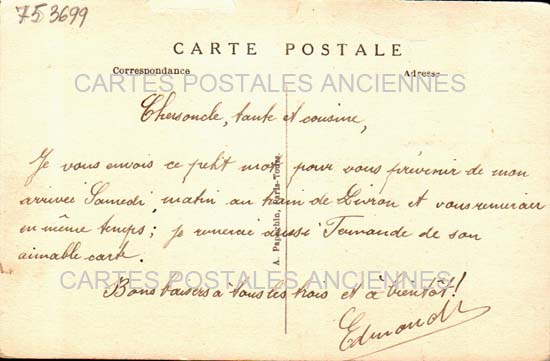 753699
CARTE POSTALE
Correspondance
Adresse
CARTES POSTALES ANCIENNES
Chers oncle, tante et cousine,
Je vous envois ce petit mot pour vous prévenir de mon
arrivée Samedi matin au train de Livron et vous remercier
en même temps; je remercie aussi Fernande de son
aimable carte.
CARTES POSTALES ANCIENNES
Bons baisers à tous les trois et à bientôt!
Edmond
A. Papeghin, Paris-Tours.